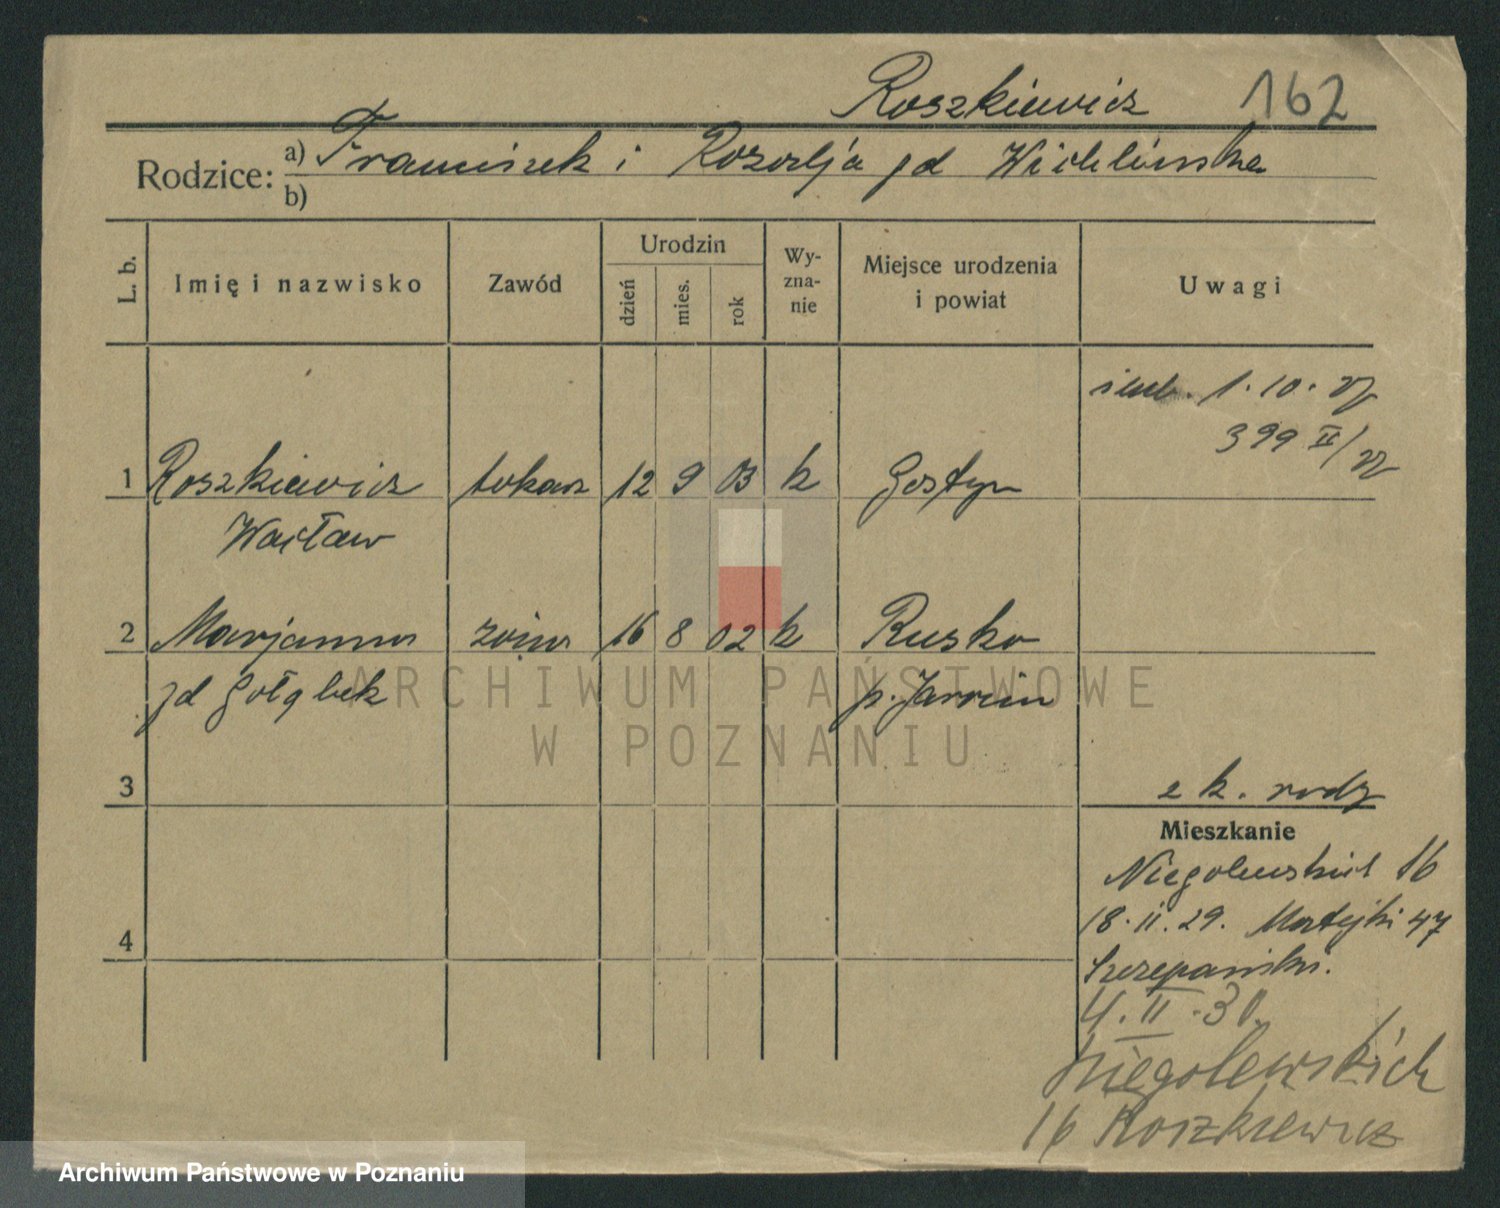 Roszkiewicz 162
Rodzice: a) Franciszek i Rozalja zd Wichlińska
b)
L. b. Imię i nazwisko Zawód Urodzin dzień mies. rok Wy-zna-nie Miejsce urodzenia i powiat Uwagi
ślub. 1.10.27
399 II/27
1 Roszkiewicz tokarz 12 9 03 k Gostyn
Wacław
2 Marjanna żona 16 8 02 k Rusko
zd Gołąbek p. Jarocin
ARCHIWUM PAŃSTWOWE
W POZNANIU
3 z k. rodz
Mieszkanie
Niegolewskich 16
18.II.29. Matejki 47
4
Szczepański.
4.II.30.
Niegolewskich
16 Roszkiewicz
Archiwum Państwowe w Poznaniu